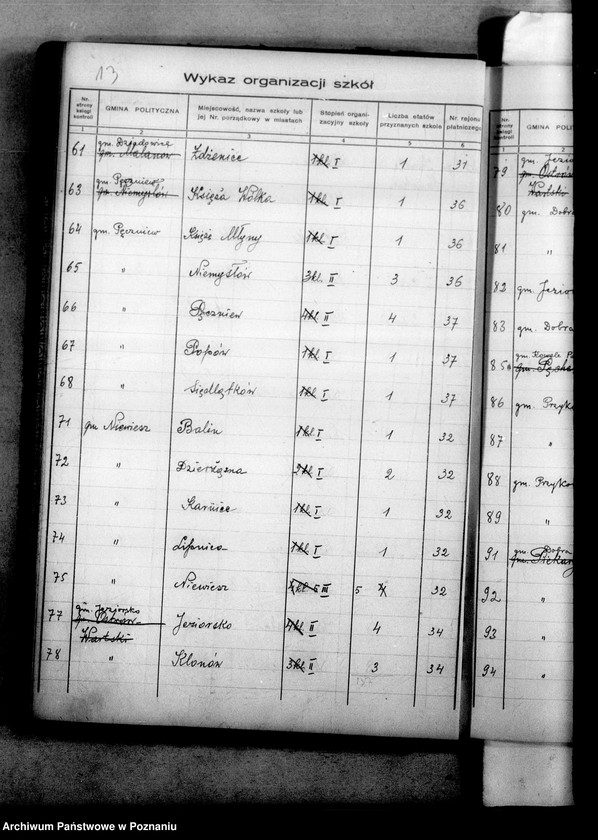 13
Wykaz organizacji szkół
Nr. strony księgi kontroli | GMINA POLITYCZNA | Miejscowość, nazwa szkoły lub jej Nr. porządkowy w miastach | Stopień organizacyjny szkoły | Liczba etatów przyznanych szkole | Nr. rejonu płatniczego
1 2 3 4 5 6
gm. Dzigdowice
61 gm. Malanów Zdżenice 1 kl I 1 31
gm. Pęczniew
63 gm. Niemysłów Księża Wólka 1 kl I 1 36
64 gm. Pęczniew Księże Młyny 1 kl I 1 36
65 " Niemysłów 3 kl II 3 36
66 " Pęczniew 4 kl II 4 37
67 " Popów 1 kl I 1 37
68 " Siedlątków 1 kl I 1 37
71 gm Niewiesz Balin 1 kl I 1 32
72 " Dzierżązna 2 kl I 2 32
73 " Karnice 1 kl I 1 32
74 " Lipnica 1 kl I 1 32
75 " Niewiesz III 5 32
gm. Jeziorsko
77 gm. Ostrów Wartski Jeziorsko 4 kl II 4 34
78 " Klonów 3 kl II 3 34
Nr. strony księgi kontroli | GMINA POLI
1 2
gm. Jezio
79 gm. Ostrów
Wartski
80 gm. Dobr
81 "
82 gm. Jezio
83 gm. Dobra
gm Kowale P
85
86 gm. Przyko
87 "
88 gm. Przyko
89 "
gm. Dobra
91 gm. Piekar
92 "
93 "
94 "
Archiwum Państwowe w Poznaniu